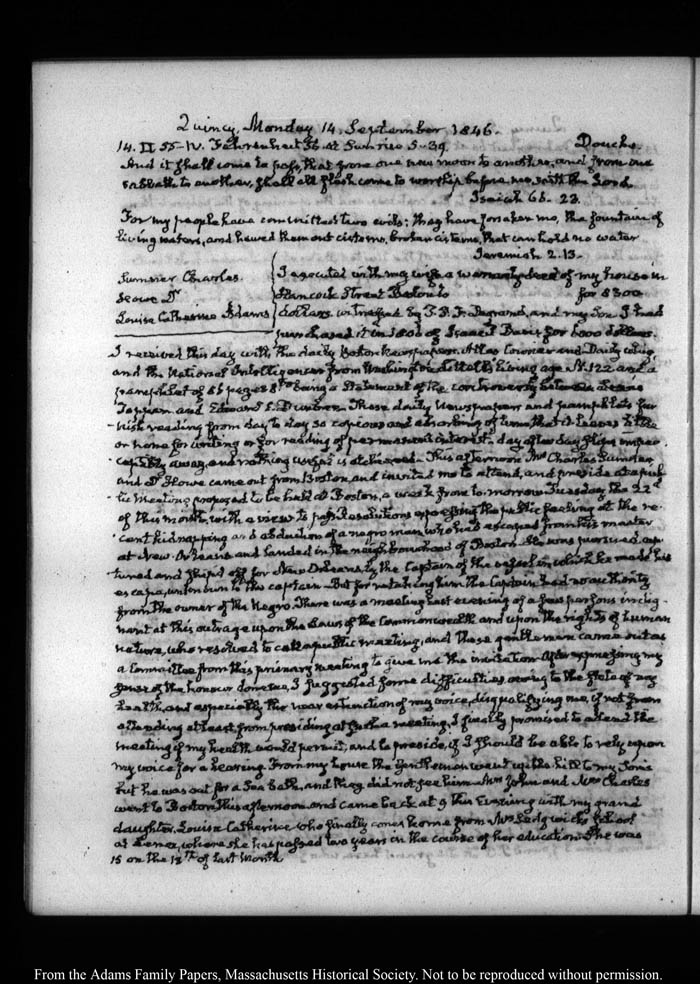 Quincy, Monday 14. September 1846.
14. II 55-IV. Fahrenheit 56 at Sunrise 5-39. Douche.
And it shall come to pass, that from one new moon to another, and from one
sabbath to another, shall all flesh come to worship before me, saith the Lord.
Isaiah 66. 23.
For my people have committed two evils: they have forsaken me, the fountain of
living waters, and hewed them out cisterns, broken cisterns, that can hold no water
Jeremiah 2.13.
Sumner Charles.
Howe Dr
Louisa Catherine Adams
I executed with my wife a warranty deed of my house in
Hancock Street Boston to for 8300
dollars witnessed by and my Son I had
purchased it in 1806 of Israel for dollars.
I received this day with the daily Boston Newspapers. Atlas Courier and Daily Whig,
and the National Intelligencer from Washington Littell's living age No. 122 and a
pamphlet of 56 pages 8vo being a Statement of the controversy between Lewis
Tappan and Edward E. Dunbar. These daily Newspapers and pamphlets fur
-nish reading from day to day so copious and absorbing of time that it leaves little
or none for writing or for reading of permanent interest, day after day slips imper
-ceptibly away, and nothing useful is atchieved. This afternoon Mr Charles Sumner
and Dr Howe came out from Boston, and invited me to attend, and preside at a pub
-lic Meeting proposed to be held at Boston, a week from to-morrow Tuesday the 22d
of this month, with a view to pass Resolutions expressing the public feeling at the re
-cent kidnapping and abduction of a negro man who had escaped from his master
at New-Orleans and landed in the neighbourhood of Boston. He was pursued cap
-tured and shipped off for New Orleans, by the Captain of the vessel in which he made his
escape, unknown to the captain. But for retaking him the Captain had no authority
from the owner of the Negro. There was a meeting last evening of a few persons indig
-nant at this outrage upon the Laws of the Commonwealth and upon the rights of human
nature, who resolved to call a public meeting, and these gentlemen came out as
a Committee from this primary meeting to give me the invitation. After expressing my
sense of the honour done me, I suggested some difficulties owing to the state of my
health, and especially the near extinction of my voice, disqualifying me, if not from
attending at least from presiding at such a meeting, I finally promised to attend the
meeting if my health would permit, and to preside, if I should be able to rely upon
my voice for a hearing. From my house the Gentlemen went up the hill to my Son's
but he was out for a Sea bath, and they did not see him. Mrs John and Mrs Charles
went to Boston this afternoon and came back at 9 this Evening with my grand
daughter, Louisa Catherine who finally comes home from Mrs Sedgwick's School
at Lenox, where she has passed two years in the course of her education. She was
15 on the 13th of last Month
From the Adams Family Papers, Massachusetts Historical Society. Not to be reproduced without permission.